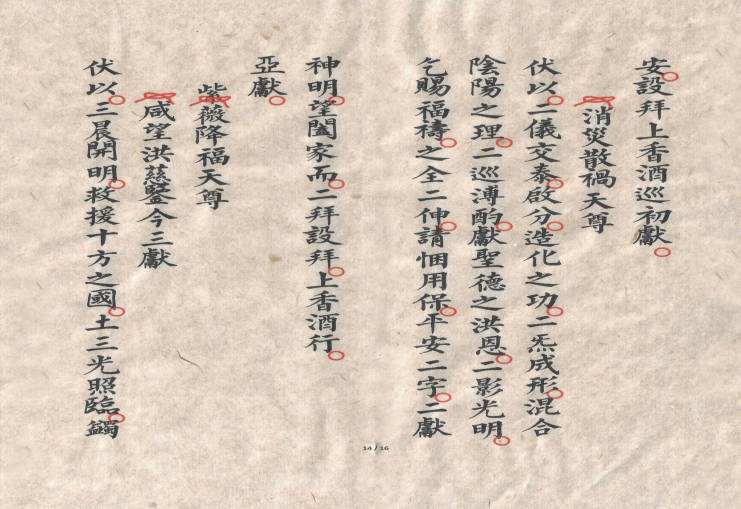 安設拜上香酒巡初獻
消災散禍天尊
伏以二儀交泰啟分造化之功二炁成形混合
陰陽之理二巡溥酌獻聖德之洪恩二影光明
乞賜福禱之全二伸請悃用保平安二字二獻
神明望闔家而二拜設拜上香酒行
亞獻
紫薇降福天尊
咸望洪慈鑒今三獻
伏以三晨開明救援十方之國土三光照臨鐲
14 / 16